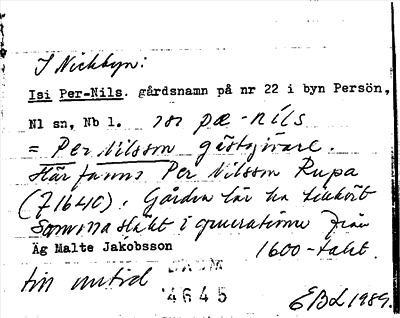 I Nickbyn:
Isi Per-Nils. gårdsnamn på nr 22 i byn Persön,
Nl sn, Nb l. pæ-nils
= Per Nilsson gästgivare.
Här fanns Per Nilsson Rupa
(f 1640). Gården lär ha tillhört
samma släkt i generationer från
Äg Malte Jakobsson 1600-talet
till nutid
4645
EBL 1989.